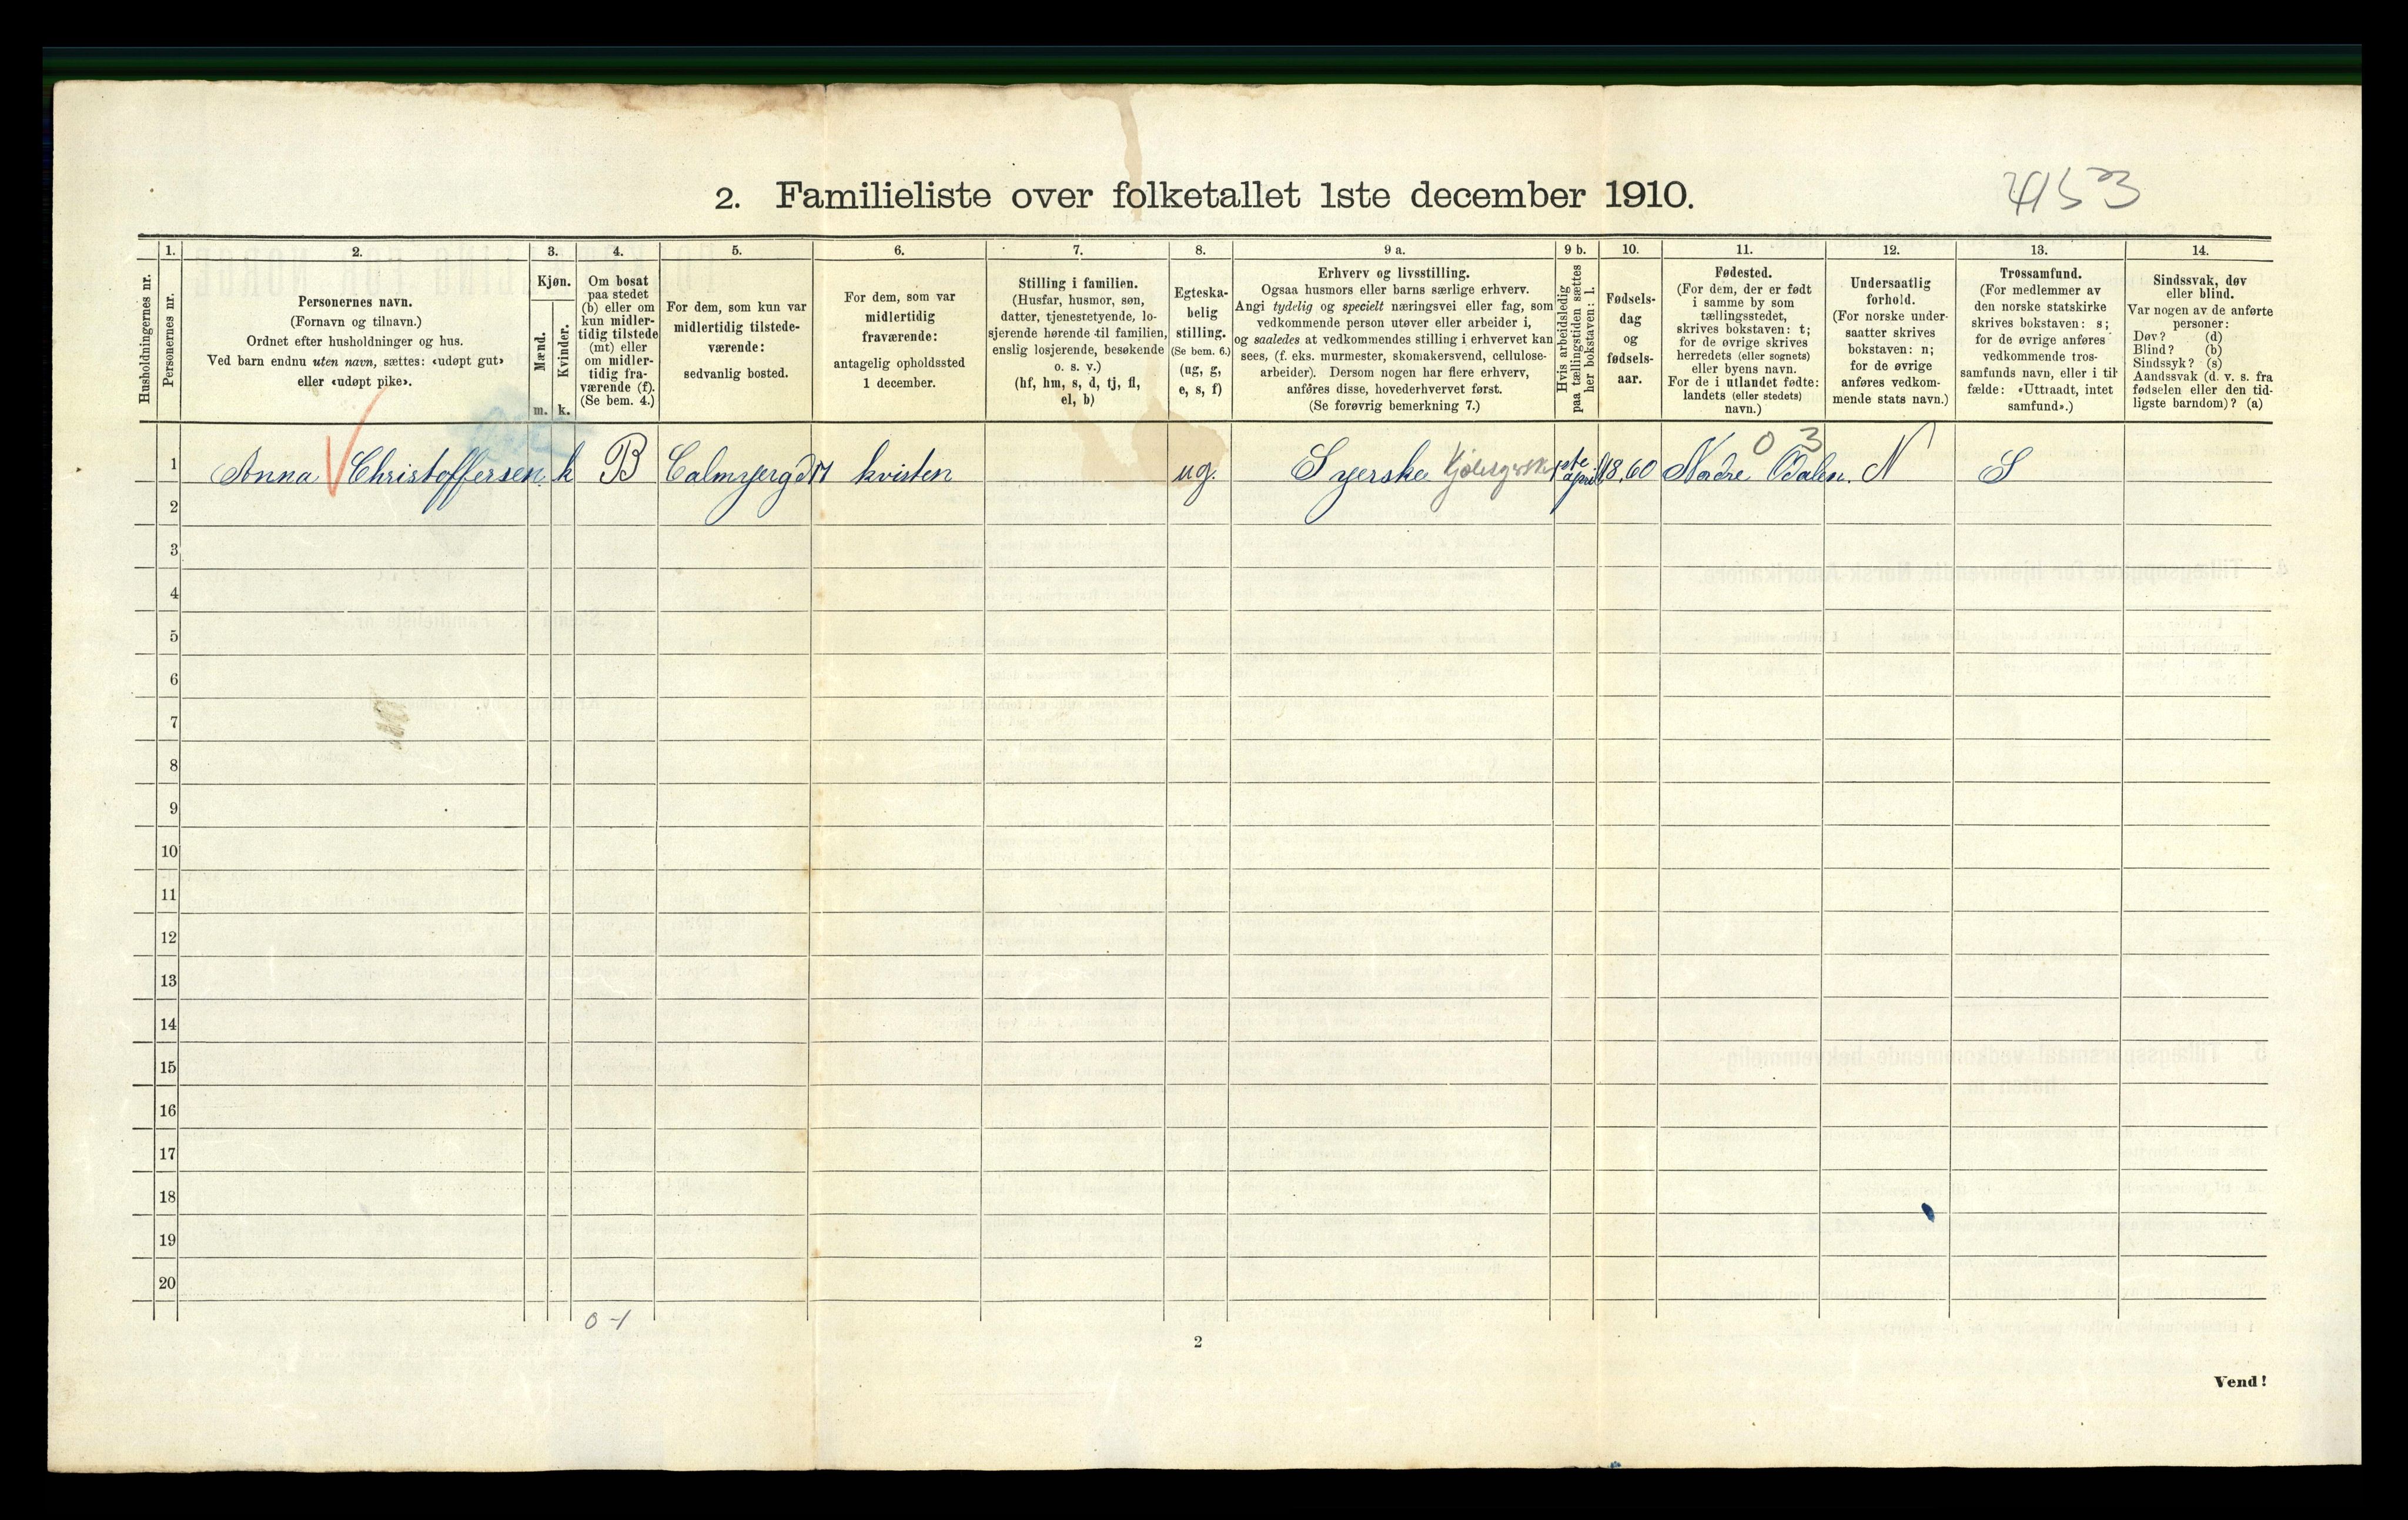 4153
2. Familieliste over folketallet 1ste december 1910.
Husholdningernes nr.
1.
Personernes nr.
2.
Personernes navn.
(Fornavn og tilnavn.)
Ordnet efter husholdninger og hus.
Ved barn endnu uten navn, sættes: «udøpt gut»
eller «udøpt pike».
3.
Kjøn.
Mænd.
m.
Kvinder.
k.
4.
Om bosat
paa stedet
(b) eller om
kun midler-
tidig tilstede
(mt) eller
om midler-
tidig fra-
værende (f).
(Se bem. 4.)
5.
For dem, som kun var
midlertidig tilstede-
værende:
sedvanlig bosted.
6.
For dem, som var
midlertidig
fraværende:
antagelig opholdssted
1 december.
7.
Stilling i familien.
(Husfar, husmor, søn,
datter, tjenestetyende, lo-
sjerende hørende til familien,
enslig losjerende, besøkende
o. s. v.)
(hf, hm, s, d, tj, fl,
el, b)
8.
Egteska-
belig
stilling.
(Se bem. 6.)
(ug, g,
e, s, f)
9 a.
Erhverv og livsstilling.
Ogsaa husmors eller barns særlige erhverv.
Angi tydelig og specielt næringsvei eller fag, som
vedkommende person utøver eller arbeider i,
og saaledes at vedkommendes stilling i erhvervet kan
sees, (f. eks. murmester, skomakersvend, cellulose-
arbeider). Dersom nogen har flere erhverv,
anføres disse, hovederhvervet først.
(Se forøvrig bemerkning 7.)
9 b.
Hvis arbeidsledig
paa tællingstiden sættes
her bokstaven: l.
10.
Fødsels-
dag
og
fødsels-
aar.
11.
Fødested.
(For dem, der er født
i samme by som
tællingsstedet,
skrives bokstaven: t;
for de øvrige skrives
herredets (eller sognets)
eller byens navn.
For de i utlandet fødte:
landets (eller stedets)
navn.)
12.
Undersaatlig
forhold.
(For norske under-
saatter skrives
bokstaven: n;
for de øvrige
anføres vedkom-
mende stats navn.)
13.
Trossamfund.
(For medlemmer av
den norske statskirke
skrives bokstaven: s;
for de øvrige anføres
vedkommende tros-
samfunds navn, eller i til-
fælde: «Uttraadt, intet
samfund».)
14.
Sindssvak, døv
eller blind.
Var nogen av de anførte
personer:
Døv? (d)
Blind? (b)
Sindssyk? (s)
Aandssvak (d. v. s. fra
fødselen eller den tid-
ligste barndom)? (a)
0 3
1 Anna Christoffersen k B Calmyergd 17 kvisten ug. Syerske 1ste april 18,60 Nordre Odalen. N S
2
3
4
5
6
7
8
9
10
11
12
13
14
15
16
17
18
19
20
0-1
2
Vend!